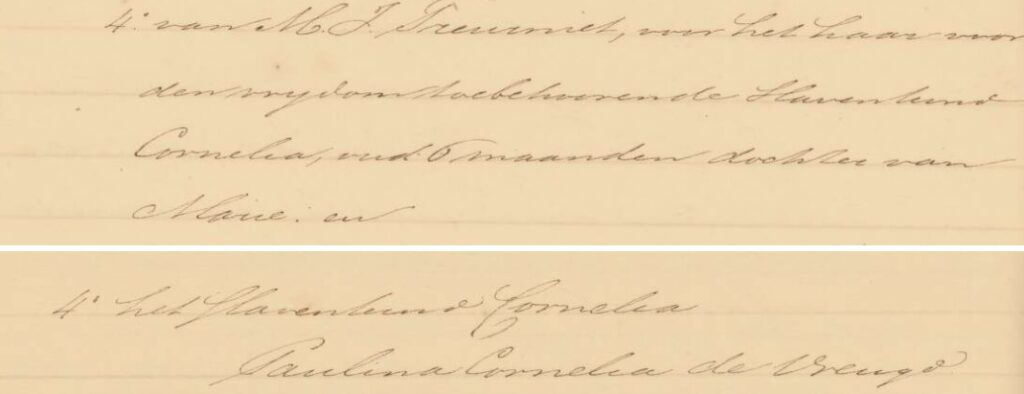 4° van M. J. Treurniet, voor het haar voor
den vrydom toebehoorende Slavenkind
Cornelia, oud 6 maanden dochter van
Marie: en
4° het Slavenkind Cornelia
Paulina Cornelia de Vreugd